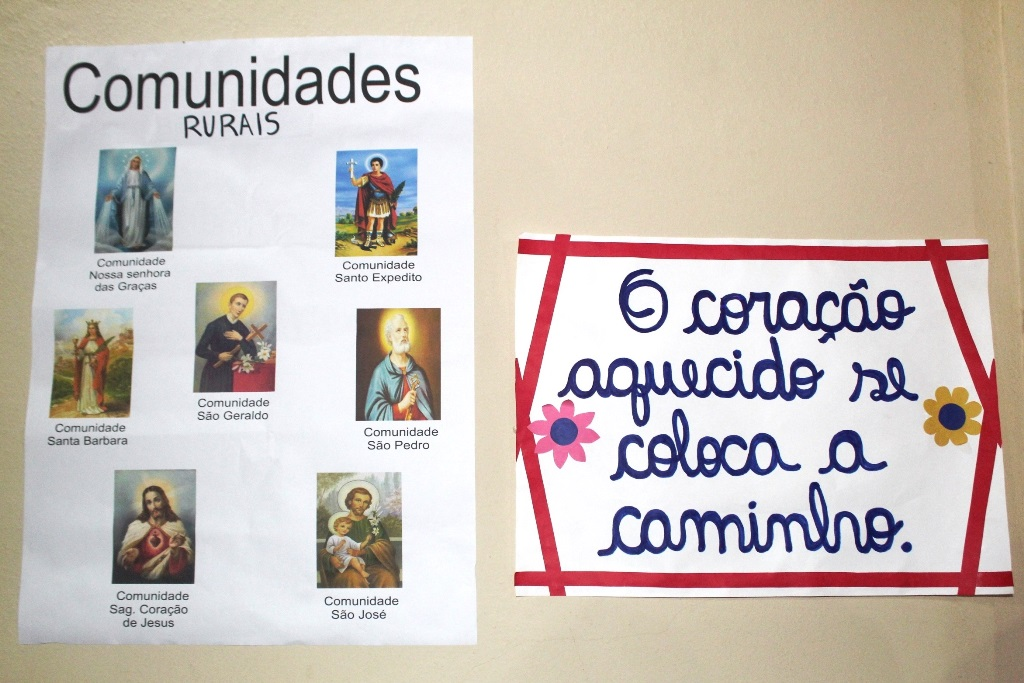 Comunidades
RURAIS
Comunidade
Nossa senhora
das Graças
Comunidade
Santo Expedito
Comunidade
São Geraldo
Comunidade
Santa Barbara
Comunidade
São Pedro
Comunidade
Sag. Coração
de Jesus
Comunidade
São José
O coração
aquecido se
coloca a
caminho.